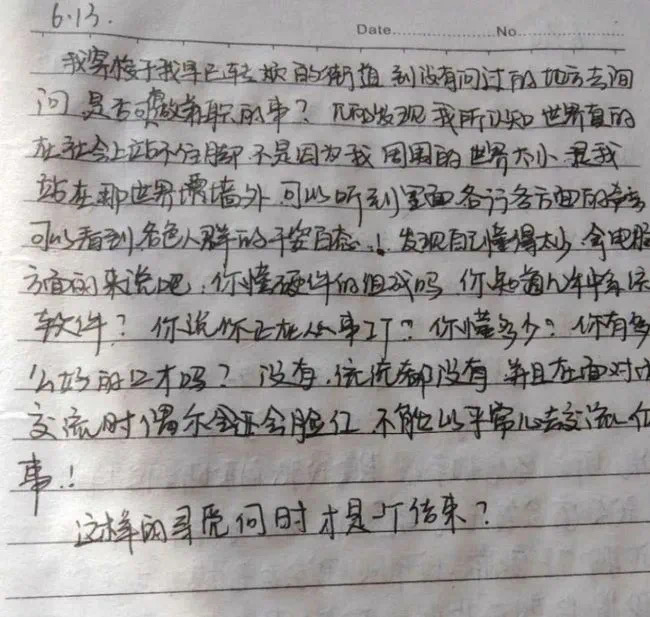 6.13.
Date No
我穿梭于我早已转熟的街道 到没有问过的地方去询
问 是否可做兼职的事？ 而却发现 我所认知世界真的
在社会上站不住脚 不是因为我 周围的世界太小 是我
站在那世界 墙外 可以听到里面 各行各方面的
可以看到 各色人群的千姿百态.！ 发现自己懂得太少 拿电脑
方面的来说吧. 你懂硬件的组成吗 你知道 系统
软件？ 你说你正在从事IT？ 你懂多少？ 你有多
么好的口才吗？ 没有. 统统都没有 并且在面对
交流时 偶尔会还会脸红 不能以平常心去交流一
事.！
这样的寻觅何时才是个结束？